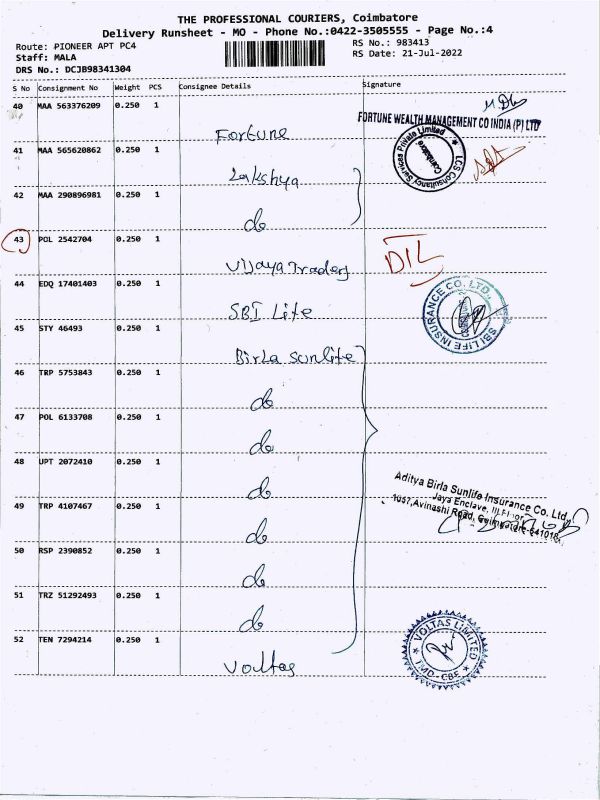 THE PROFESSIONAL COURIERS, Coimbatore
Delivery Runsheet - MO - Phone No.:0422-3505555 - Page No.:4
Route: PIONEER APT PC4 RS No.: 983413
Staff: MALA RS Date: 21-Jul-2022
DRS No.: DCJB98341304
S No Consignment No Weight PCS Consignee Details Signature
40 MAA 563376209 0.250 1 Fortune
FORTUNE WEALTH MANAGEMENT CO INDIA (P) LTD
41 MAA 565620862 0.250 1 Lakshya
LCS Consultancy Services Private Limited
Coimbatore
42 MAA 290896981 0.250 1 do
43 POL 2542704 0.250 1 Vijaya Traders DIL
44 EDQ 17401403 0.250 1 SBI Life
SBI LIFE INSURANCE CO. LTD.,
45 STY 46493 0.250 1 Birla Sunlife
46 TRP 5753843 0.250 1 do
47 POL 6133708 0.250 1 do
48 UPT 2072410 0.250 1 do
Aditya Birla Sunlife Insurance Co. Ltd.,
Jaya Enclave, III Floor
1057, Avinashi Road, Coimbatore-641018.
49 TRP 4107467 0.250 1 do
50 RSP 2390852 0.250 1 do
51 TRZ 51292493 0.250 1 do
52 TEN 7294214 0.250 1 Voltas
VOLTAS LIMITED
TMD-CBE